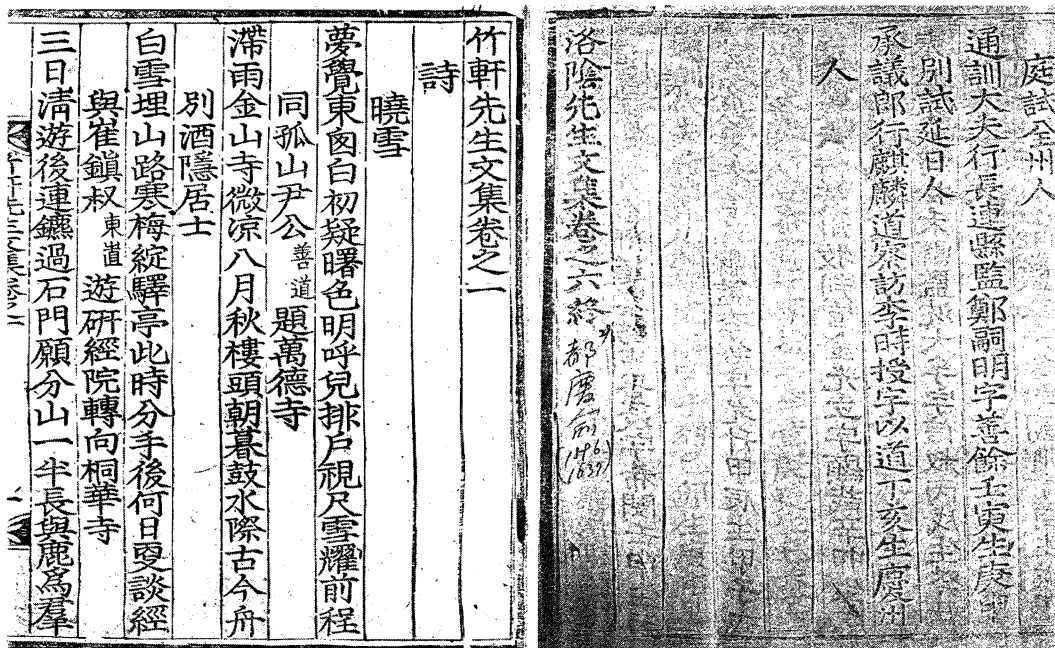 庭試全州人
通訓大夫行長連縣監鄭嗣明字善餘壬寅生庚申
別試延日人
承議郎行麒麟道察訪李時授字以道丁亥生慶州
人
洛陰先生文集卷之六終
都慶兪
竹軒先生文集卷之一
詩
曉雪
夢覺東囪白初疑曙色明呼兒排戶視尺雪耀前程
同孤山尹公善道題萬德寺
滯雨金山寺微凉八月秋樓頭朝暮鼓水際古今舟
別酒隱居士
白雪埋山路寒梅綻驛亭此時分手後何日更談經
與崔鎭叔東遊硏經院轉向桐華寺
三日淸遊後連鑣過石門願分山一半長與鹿爲羣